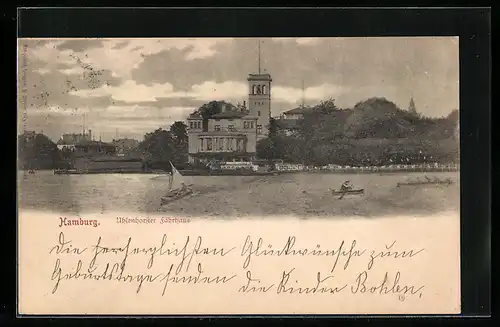 Hamburg. Uhlenhorster Fährhaus
Die herzlichsten Glückwünsche zum
Geburtstage senden die Kinder Bohlen,
19